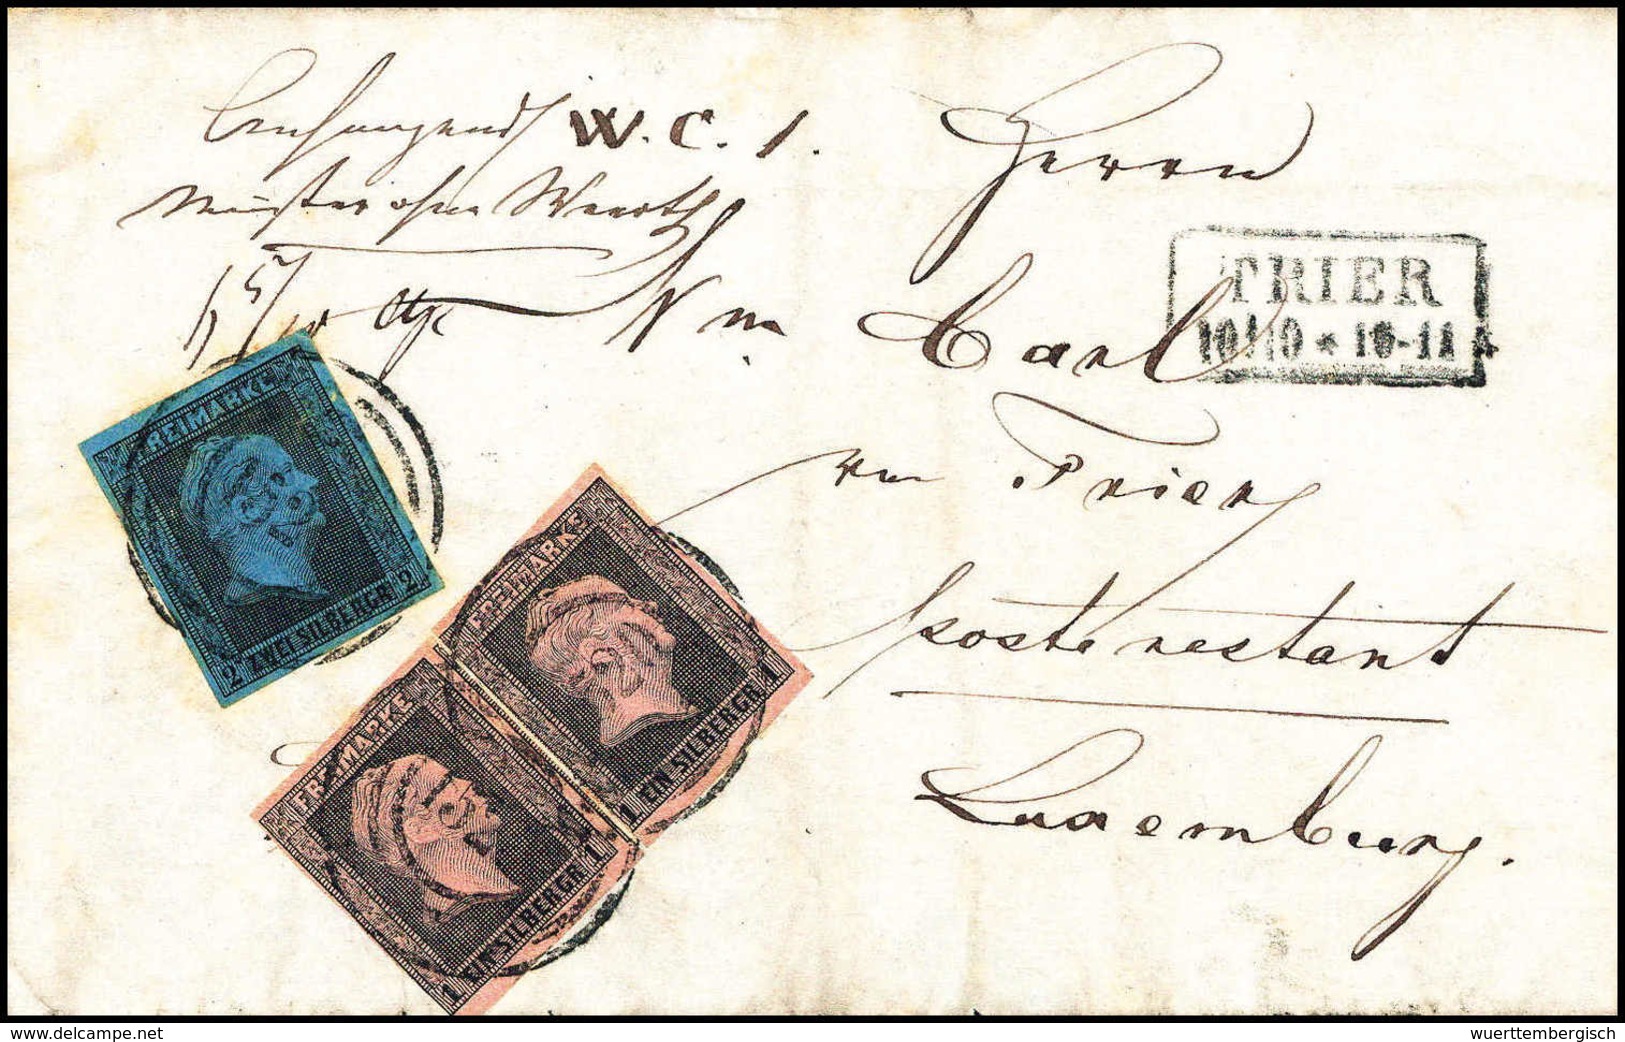 W. C. 1.
Muster ohne Werth
Herrn
Carl
TRIER
10 10 * 10-11
von Trier
poste restant
Luxemburg.
FREIMARKE
2 ZWEI SILBERGR 2
FREIMARKE
1 EIN SILBERGR 1
FREIMARKE
1 EIN SILBERGR 1
www.delcampe.net
wuerttembergisch